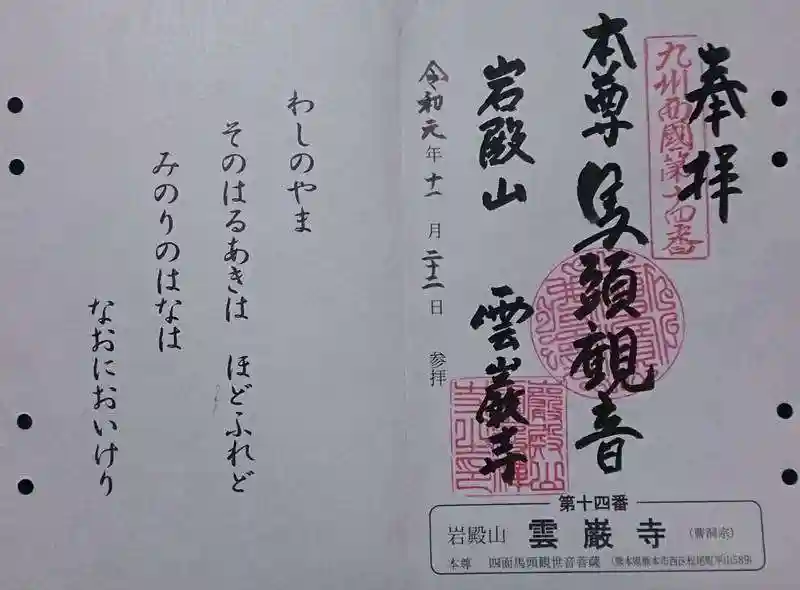 奉拝
九州西國第十四番
本尊 馬頭観音
岩殿山 雲巌寺
令和元年十一月二十二日 参拝
わしのやま
そのはるあきは ほどふれど
みのりのはなは
なおにおいけり
第十四番
岩殿山 雲巌寺 (曹洞宗)
本尊 四面馬頭観世音菩薩 (熊本県熊本市西区松尾町平山589)